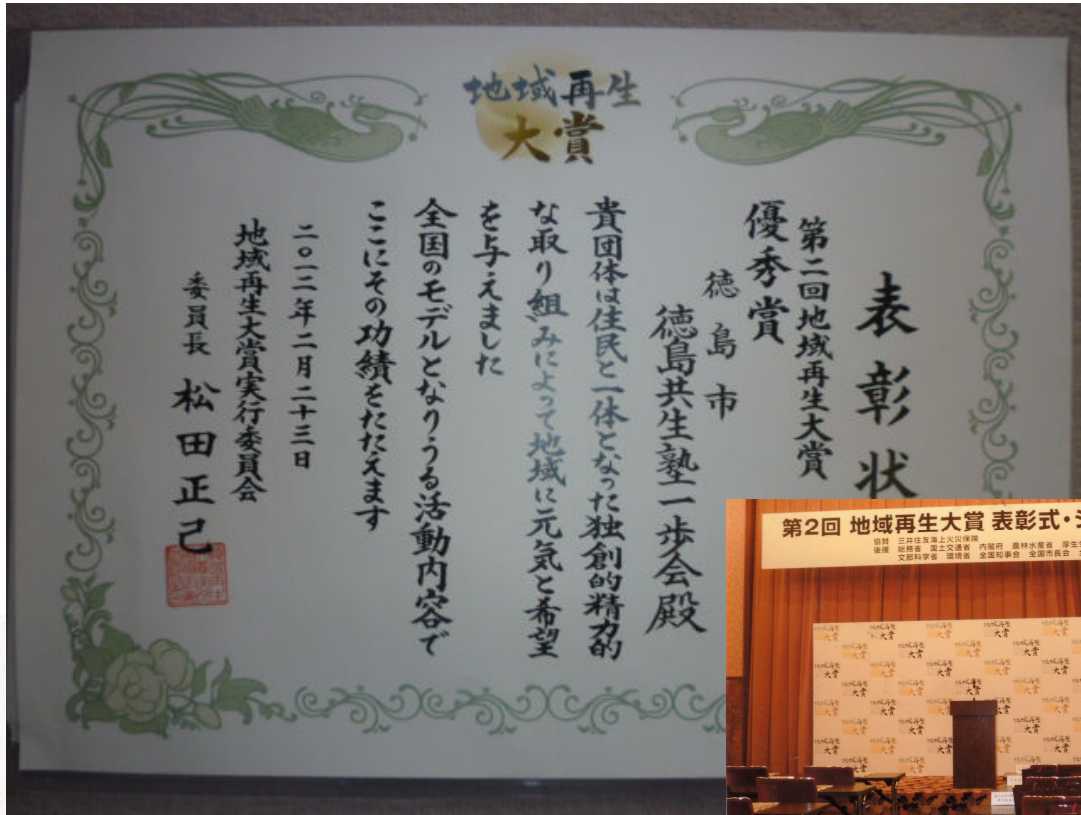 地域再生
大賞
表彰状
第二回地域再生大賞
優秀賞
徳島市
徳島共生塾一歩会殿
貴団体は住民と一体となった独創的精力的
な取り組みによって地域に元気と希望
を与えました
全国のモデルとなりうる活動内容で
ここにその功績をたたえます
二〇一二年二月二十三日
地域再生大賞実行委員会
委員長 松田正己
第2回 地域再生大賞 表彰式・シ
協賛 三井住友海上火災保険
後援 総務省 国土交通省 内閣府 農林水産省 厚生
文部科学省 環境省 全国知事会 全国市長会